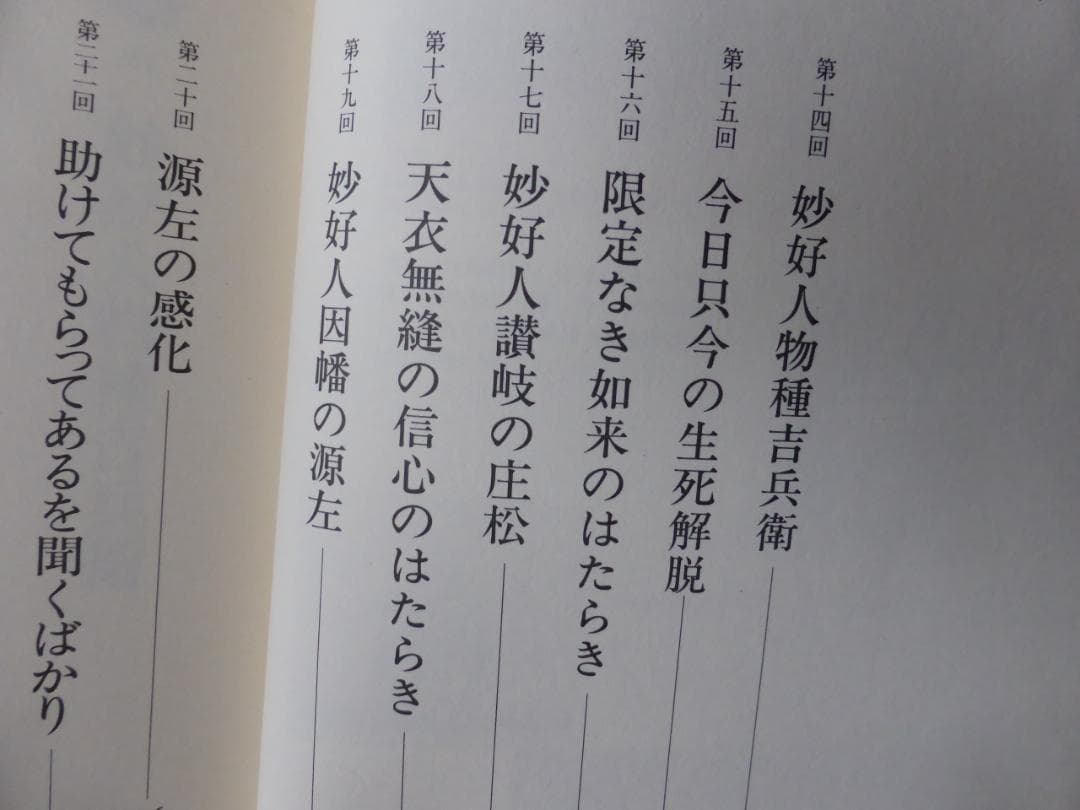 第十四回 妙好人物種吉兵衛
第十五回 今日只今の生死解脱
第十六回 限定なき如来のはたらき
第十七回 妙好人讃岐の庄松
第十八回 天衣無縫の信心のはたらき
第十九回 妙好人因幡の源左
第二十回 源左の感化
第二十一回 助けてもらってあるを聞くばかり